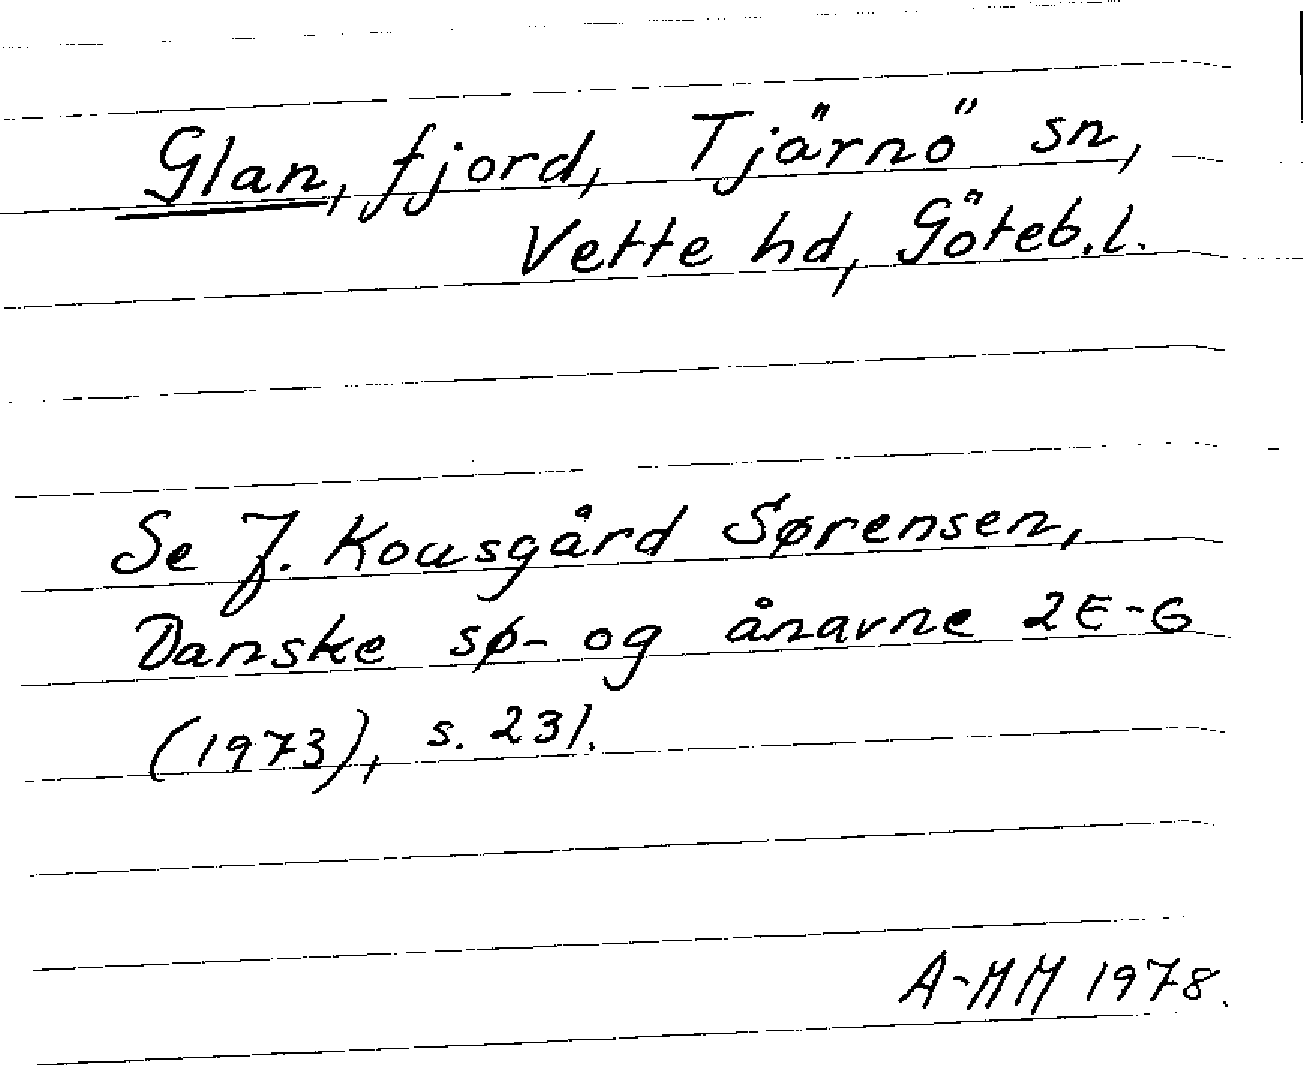 Glan, fjord, Tjärnö sn,
Vette hd, Göteb.l.
Se J. Kousgård Sørensen,
Danske sø- og ånavne 2 E-G
(1973), s. 231.
A-MM 1978.